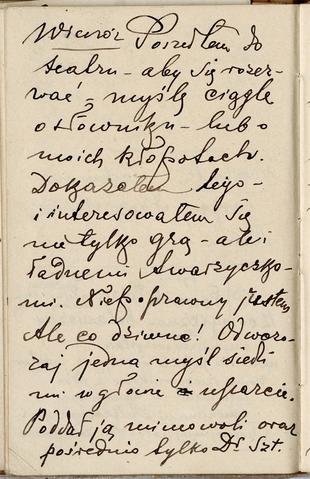 Wieczór Poszedłem do
teatru – aby się rozer-
wać – myślę ciągle
o słowniku – lub o
moich kłopotach.
Dokazałem tego –
i interesowałem się
nie tylko grą – ale i
ładnemi twarzyczka-
mi. Niepoprawny jestem
Ale co dziwne! Odwczo-
raj jedna myśl siedzi
mi w głowie i uparcie.
Poddał ją mimowoli oraz
pośrednio tylko Dr Szt.